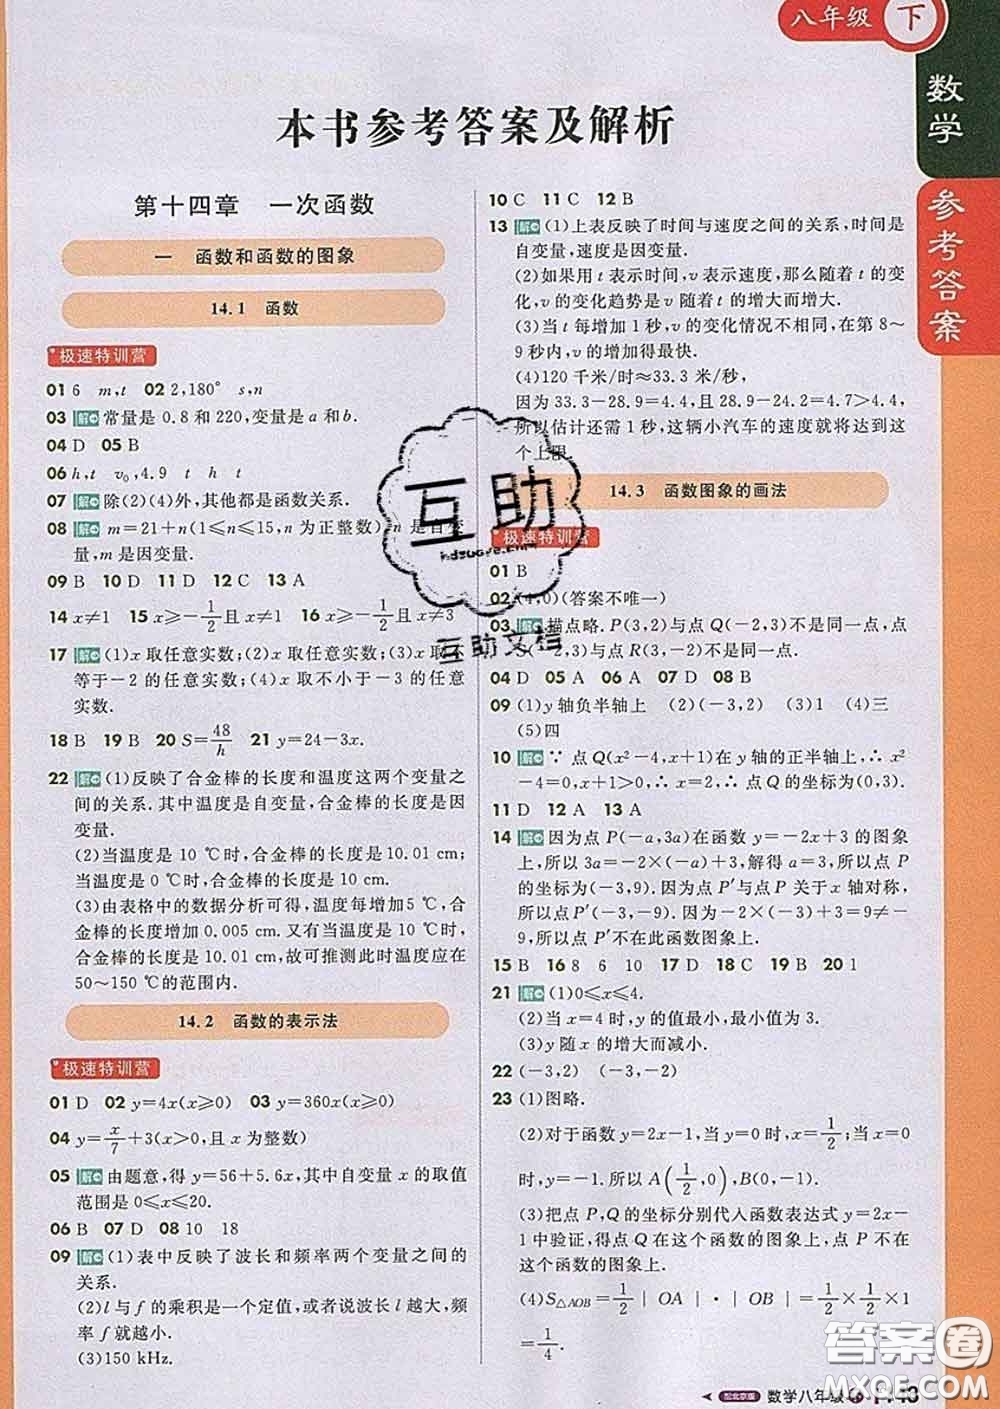 八年级 下
数学
参考答案
本书参考答案及解析
第十四章 一次函数
一 函数和函数的图象
14.1 函数
极速特训营
01 6 m,t 02 2,180° s,n
03 解 常量是 0.8 和 220,变量是 a 和 b.
04 D 05 B
06 h,t v₀,4.9 t h t
07 解 除(2)(4)外,其他都是函数关系.
08 解 m=21+n(1≤n≤15,n 为正整数),n 是自变
量,m 是因变量.
09 B 10 D 11 D 12 C 13 A
14 x≠1 15 x≥-1/2且 x≠1 16 x≥-1/2且 x≠3
17 解 (1)x 取任意实数;(2)x 取任意实数;(3)x 取不
等于-2 的任意实数;(4)x 取不小于-3 的任意
实数.
18 B 19 B 20 S=48/h 21 y=24-3x.
22 解 (1)反映了合金棒的长度和温度这两个变量之
间的关系.其中温度是自变量,合金棒的长度是因
变量.
(2)当温度是 10 ℃时,合金棒的长度是 10.01 cm;
当温度是 0 ℃时,合金棒的长度是 10 cm.
(3)由表格中的数据分析可得,温度每增加5 ℃,合
金棒的长度增加 0.005 cm.又有当温度是 10 ℃时,
合金棒的长度是 10.01 cm,故可推测此时温度应在
50～150 ℃的范围内.
14.2 函数的表示法
极速特训营
01 D 02 y=4x(x≥0) 03 y=360x(x≥0)
04 y=x/7+3(x>0,且 x 为整数)
05 解 由题意,得 y=56+5.6x,其中自变量 x 的取值
范围是 0≤x≤20.
06 B 07 D 08 10 18
09 解 (1)表中反映了波长和频率两个变量之间的
关系.
(2)l 与 f 的乘积是一个定值,或者说波长 l 越大,频
率 f 就越小.
(3)150 kHz.
10 C 11 C 12 B
13 解 (1)上表反映了时间与速度之间的关系,时间是
自变量,速度是因变量.
(2)如果用 t 表示时间,v 表示速度,那么随着 t 的变
化,v 的变化趋势是 v 随着 t 的增大而增大.
(3)当 t 每增加 1 秒,v 的变化情况不相同,在第 8～
9 秒内,v 的增加得最快.
(4)120 千米/时≈33.3 米/秒,
因为 33.3-28.9=4.4,且 28.9-24.2=4.7>4.4,
所以估计还需 1 秒,这辆小汽车的速度就将达到这
个上限.
14.3 函数图象的画法
极速特训营
01 B
02 (4,0)(答案不唯一)
03 解 描点略.P(3,2)与点 Q(-2,3)不是同一点,点
S(-2,3)与点 R(3,-2)不是同一点.
04 D 05 A 06 D 07 D 08 B
09 (1)y 轴负半轴上 (2)(-3,2) (3)1 (4)三
(5)四
10 解 ∵ 点 Q(x²-4,x+1)在 y 轴的正半轴上,∴ x²
-4=0,x+1>0,∴ x=2,∴ 点 Q的坐标为(0,3).
11 D 12 A 13 A
14 解 因为点 P(-a,3a)在函数 y=-2x+3 的图象
上,所以 3a=-2×(-a)+3,解得 a=3,所以点 P
的坐标为(-3,9).因为点 P′与点 P 关于 x 轴对称,
所以点P′(-3,-9).因为-2×(-3)+3=9≠-
9,所以点 P′不在此函数图象上.
15 B 16 8 6 10 17 D 18 C 19 B 20 1
21 解 (1)0≤x≤4.
(2)当 x=4 时,y 的值最小,最小值为 3.
(3)y 随 x 的增大而减小.
22 (-3,2) (-3,-2)
23 (1)图略.
(2)对于函数 y=2x-1,当 y=0 时,x=1/2;当 x=0
时,y=-1.所以 A(1/2,0),B(0,-1).
(3)把点 P,Q 的坐标分别代入函数表达式 y=2x-
1 中验证,得点 Q 在这个函数的图象上,点 P 不在
这个函数的图象上.
(4)S△AOB=1/2|OA|·|OB|=1/2×1/2×1
=1/4.
互助
hdzuoye.com
互助文档
配北京版 数学八年级
答案圈
MXQE.COM